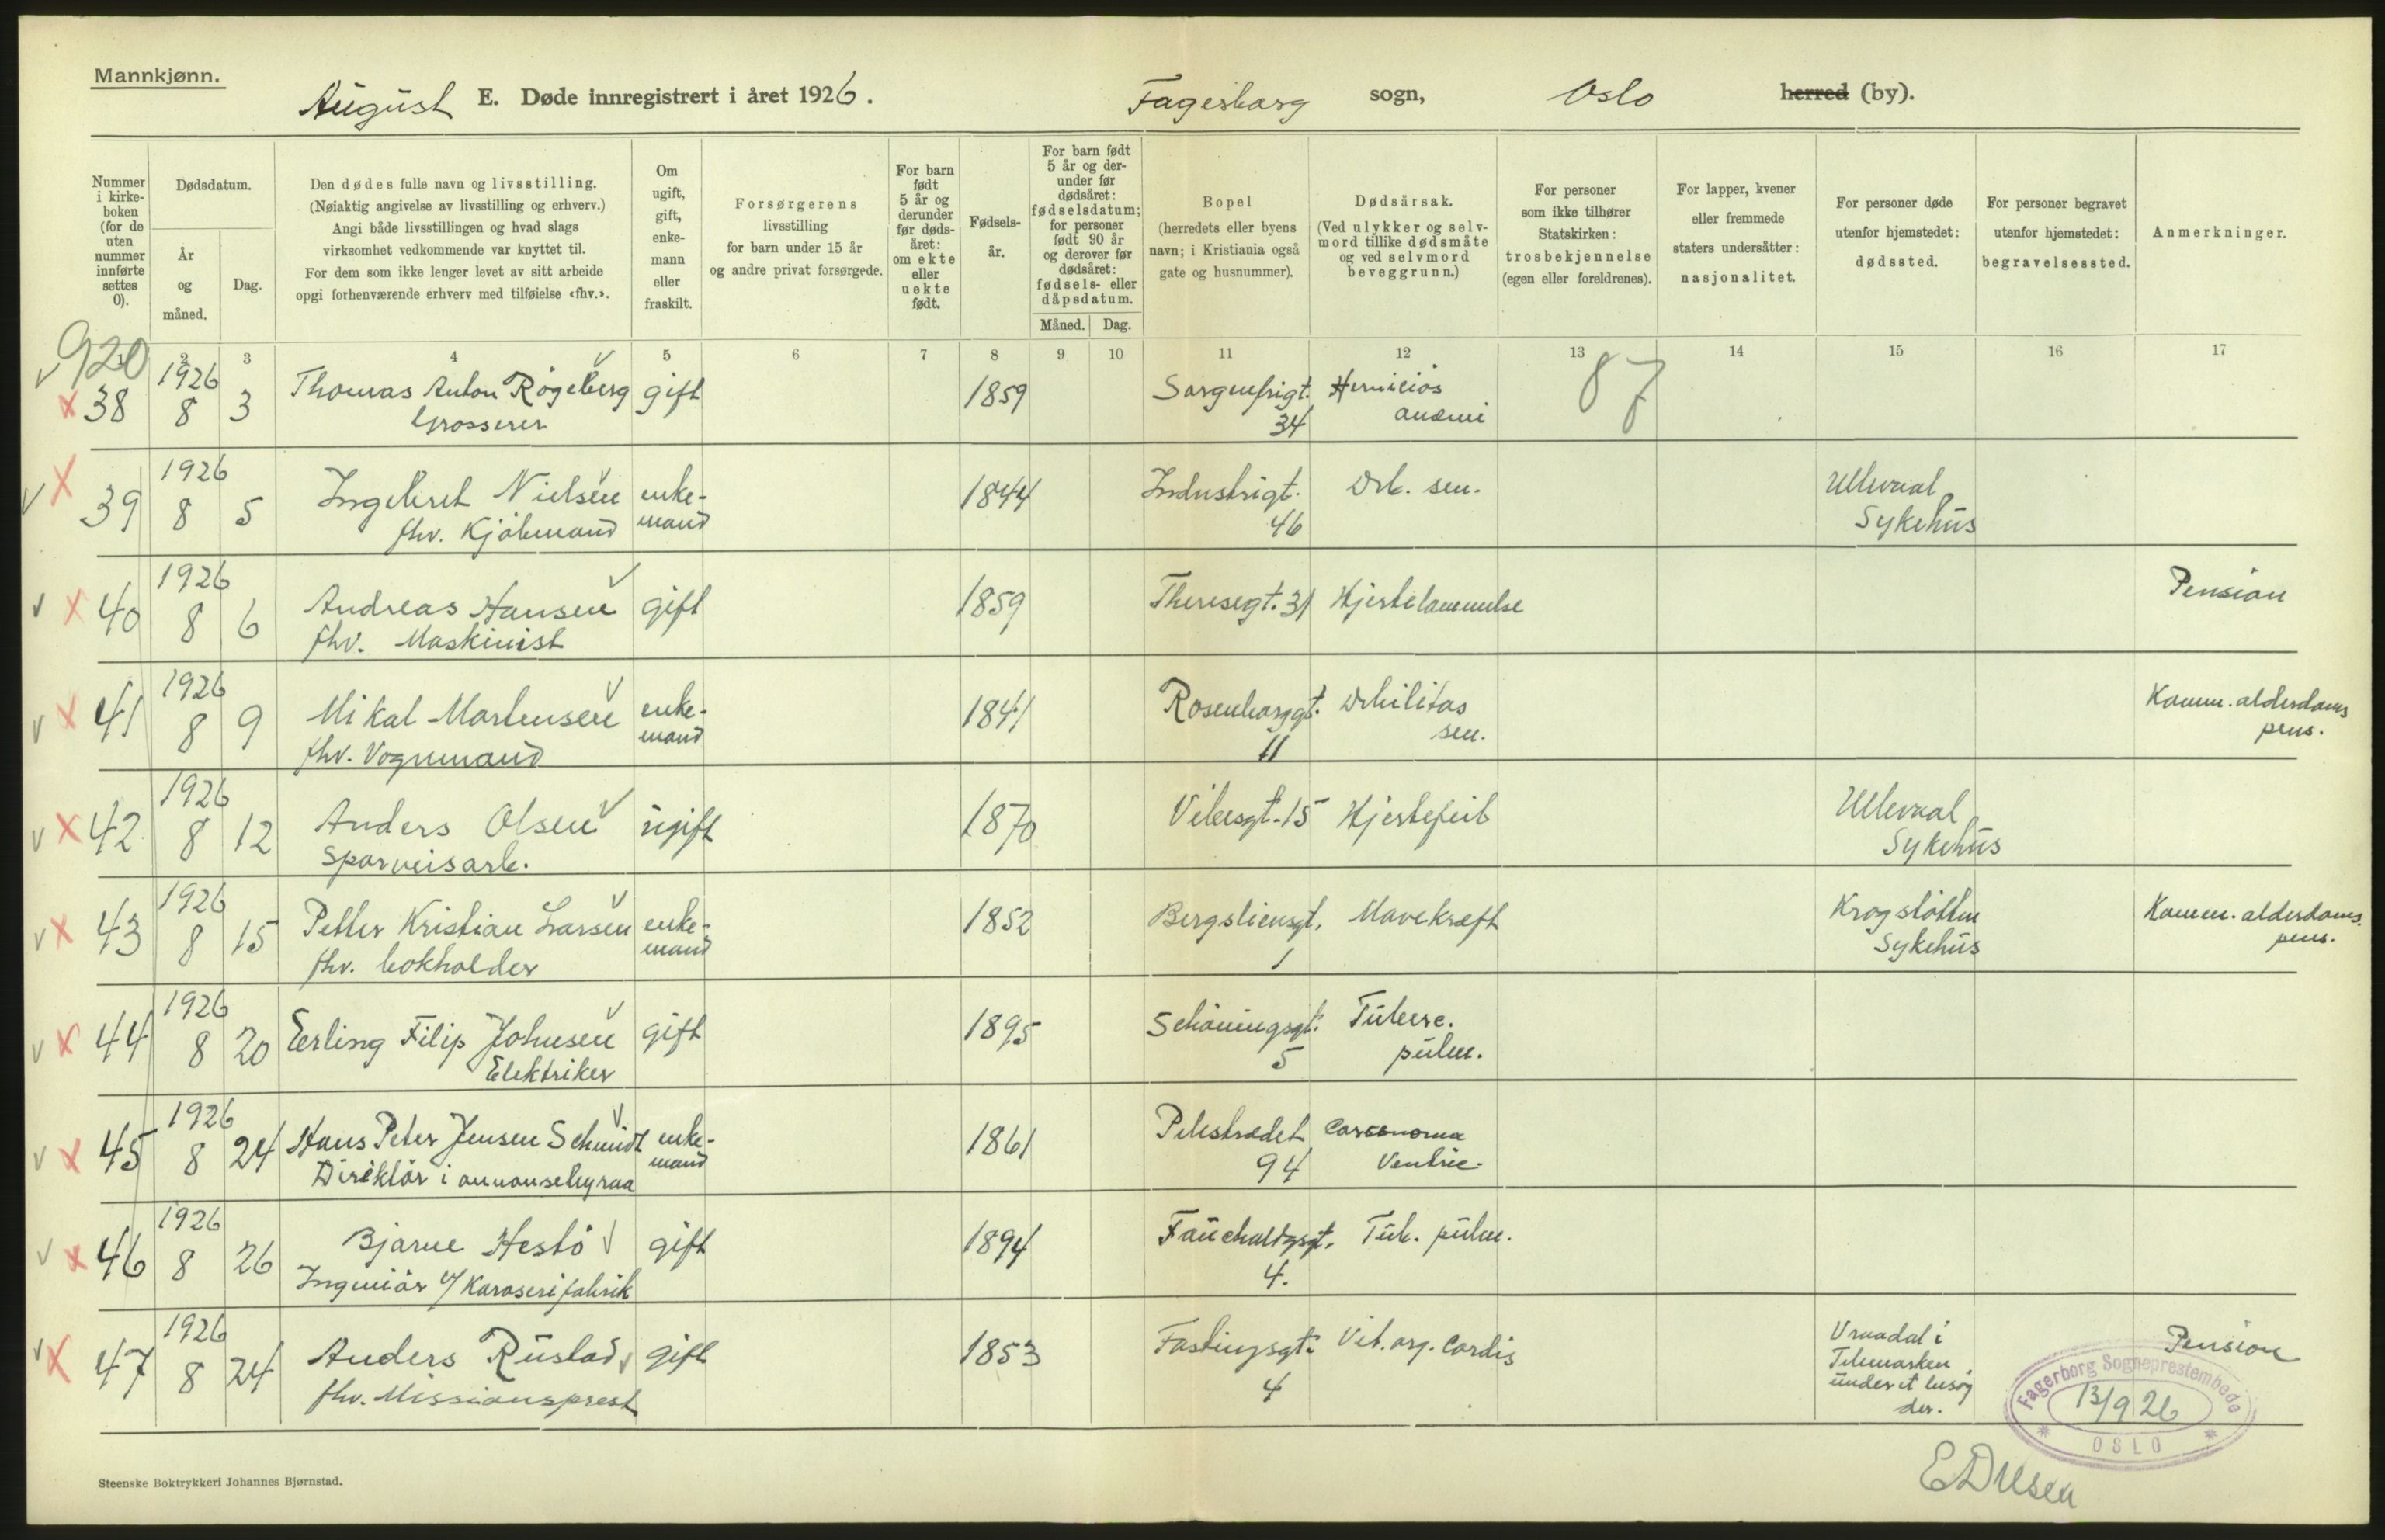 Mannkjønn.
August E. Døde innregistrert i året 1926. Fagerborg sogn, Oslo herred (by).
Nummer i kirke-boken (for de uten nummer innførte settes 0).
Dødsdatum.
År og måned.
Dag.
Den dødes fulle navn og livsstilling.
(Nøiaktig angivelse av livsstilling og erhverv.)
Angi både livsstillingen og hvad slags
virksomhet vedkommende var knyttet til.
For dem som ikke lenger levet av sitt arbeide
opgi forhenværende erhverv med tilføielse «fhv.».
Om ugift, gift, enke-mann eller fraskilt.
Forsørgerens
livsstilling
for barn under 15 år
og andre privat forsørgede.
For barn født 5 år og derunder før døds-året: om ekte eller uekte født.
Fødsels-år.
For barn født 5 år og der-under før dødsåret: fødselsdatum; for personer født 90 år og derover før dødsåret: fødsels- eller dåpsdatum.
Måned. Dag.
Bopel
(herredets eller byens
navn; i Kristiania også
gate og husnummer).
Dødsårsak.
(Ved ulykker og selv-
mord tillike dødsmåte
og ved selvmord
beveggrunn.)
For personer
som ikke tilhører
Statskirken:
trosbekjennelse
(egen eller foreldrenes).
For lapper, kvener
eller fremmede
staters undersåtter:
nasjonalitet.
For personer døde
utenfor hjemstedet:
dødssted.
For personer begravet
utenfor hjemstedet:
begravelsessted.
Anmerkninger.
1 2 3 4 5 6 7 8 9 10 11 12 13 14 15 16 17
920
87
1926
38 8 3 Thomas Anton Rogeberg gift 1859 Sorgenfrigt. Perniciøs
Grosserer 34 anæmi
1926
39 8 5 Ingebret Nielsen enke- 1844 Industrigt. Deb. sen. Ullevaal
fhv. Kjøbmand mand 46 Sykehus
1926
40 8 6 Andreas Hansen gift 1859 Theresegt. 31 Hjertelammelse Pension
fhv. Maskinist
1926
41 8 9 Mikal Martensen enke- 1841 Rosenborggt. Debilitas Komm. alderdoms
fhv. Vognmand mand 11 sen. pens.
1926
42 8 12 Anders Olsen ugift 1870 Vibesgt. 15 Hjertefeil Ullevaal
Sporveisarb. Sykehus
1926
43 8 15 Petter Kristian Larsen enke- 1852 Bergsliensgt. Mavekræft Krogstøtten Komm. alderdoms.
fhv. bokholder mand 1 Sykehus pens.
1926
44 8 20 Erling Filip Johnsen gift 1895 Schøningsgt. Tuberc.
Elektriker 5 pulm.
1926
45 8 24 Hans Peter Jensen Schmidt enke- 1861 Pilestrædet Carcenoma
Direktør i annonsebyraa mand 94 Ventric.
1926
46 8 26 Bjarne Hestø gift 1894 Fauchaldsgt. Tub. pulm.
Ingeniør v/ Karoserifabrik 4.
1926
47 8 24 Anders Rustad gift 1853 Fastingsgt. Vit. org. cordis Vraadal i Pension
fhv. Missionsprest 4 Telemarken
under et besøg
der.
Fagerborg Sogneprestembede
13/9 26
OSLO
Steenske Boktrykkeri Johannes Bjørnstad.